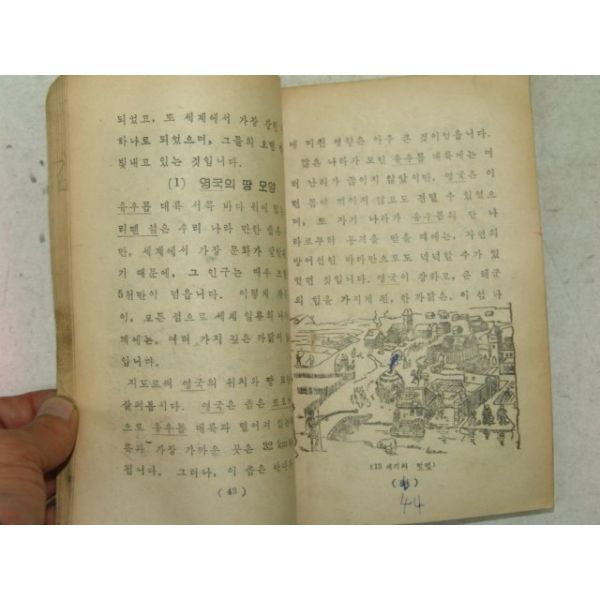 되었고, 또 세계에서 가장 강한
하나로 되었으며, 그들의 오랜
빛내고 있는 것입니다.
(1) 영국의 땅 모양
유우롭 대륙 서쪽 바다 위에
섬은 우리 나라 만한 좁은
만, 세계에서 가장 문화가
기 때문에, 그 인구는 매우
5천만이 넘읍니다. 이렇게
이, 모든 점으로 세계 일류의
데에는, 여러 가지 깊은 까닭이
입니다.
지도로써 영국의 위치와 땅
살펴봅시다. 영국은 좁은
으로 유우롭 대륙과 떨어져
륙과 가장 가까운 곳은 32 km
됩니다. 그러나, 이 좁은
(43)
에 미친 영향은 아주 큰 것이었읍니다.
많은 나라가 모인 유우롭 대륙에는 여
러 난리가 끊이지 않았지만, 영국은 이
런 틈에 끼이지 않고도 견딜 수 있었으
며, 또 자기 나라가 유우롭의 딴 나
라로부터 공격을 받을 때에는, 자연의
방어선인 바다만으로도 넉넉할 수가 있
었던 것입니다. 영국이 강하고, 큰 해군
의 힘을 가지게 된, 한 까닭은, 이 섬 나
(13 세기의 런던)
44